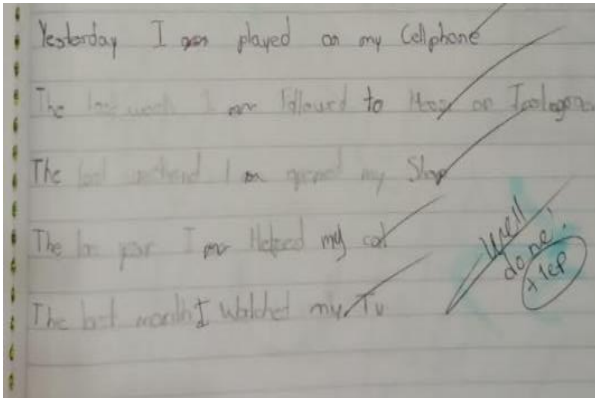 Yesterday I am played on my Cellphone
The last week I am followed to
The last weekend I am opened my Shop
The las year I am Helped my cat
The last month I Watched my Tv
well
done!
+1cp